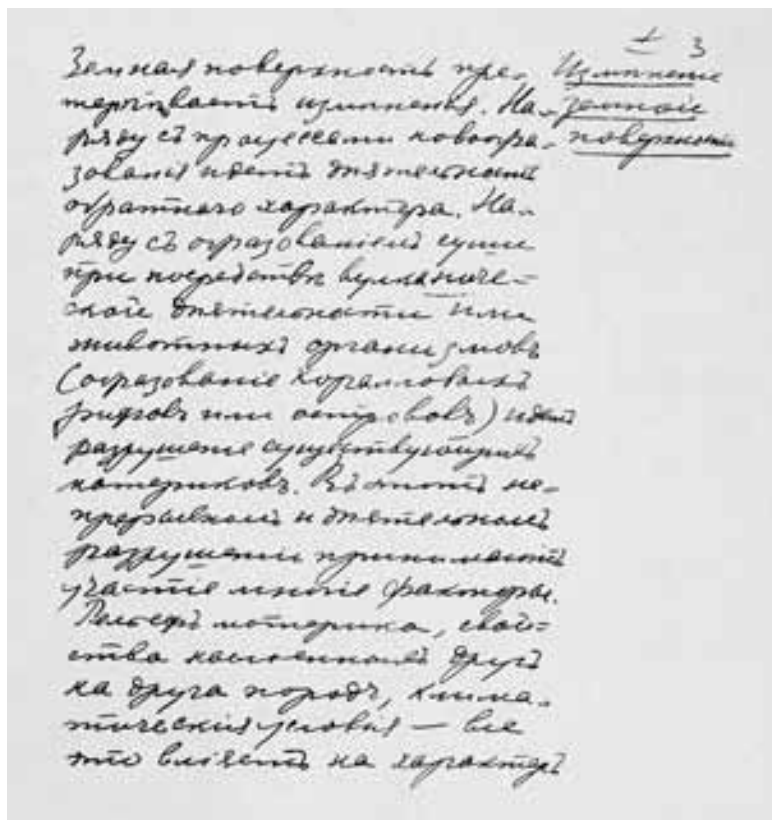 ± 3
Измѣненіе
земной
поверхности
Земная поверхность пре-
терпѣваетъ измѣненія. На-
ряду съ процессами новообра-
зованія идетъ дѣятельность
обратнаго характера. На-
ряду съ образованіемъ суши
при посредствѣ вулканиче-
ской дѣятельности или
животныхъ организмовъ
(образованіе коралловыхъ
рифовъ или острововъ) идетъ
разрушеніе существующихъ
материковъ. Въ этомъ не-
прерывномъ и дѣятельномъ
разрушеніи принимаютъ
участіе многіе факторы.
Рельефъ материка, свой-
ства наслоенныхъ другъ
на друга породъ, клима-
тическія условія — все
это вліяетъ на характеръ